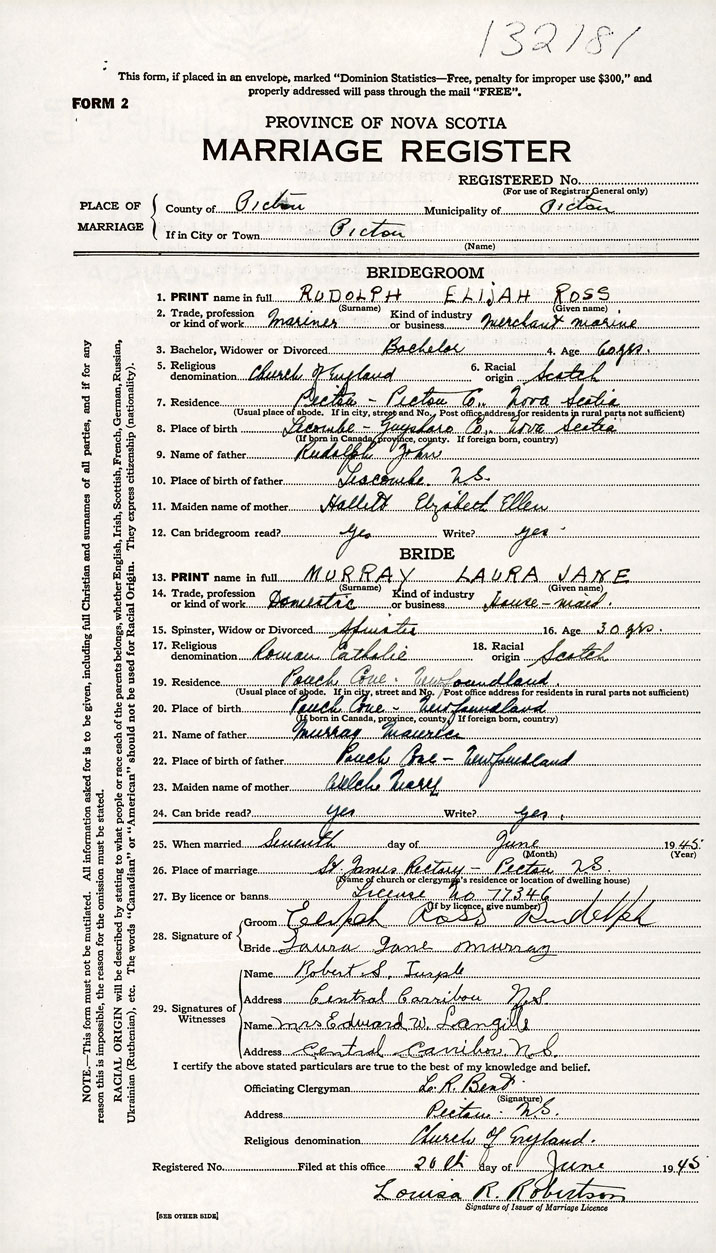 132181
This form, if placed in an envelope, marked "Dominion Statistics—Free, penalty for improper use $300," and
properly addressed will pass through the mail "FREE".
FORM 2
PROVINCE OF NOVA SCOTIA
MARRIAGE REGISTER
REGISTERED No.
(For use of Registrar General only)
PLACE OF MARRIAGE
County of Pictou Municipality of Pictou
If in City or Town Pictou
(Name)
BRIDEGROOM
1. PRINT name in full RUDOLPH ELIJAH ROSS
(Surname) (Given name)
2. Trade, profession or kind of work Mariner Kind of industry or business Merchant marine
3. Bachelor, Widower or Divorced Bachelor 4. Age 60 yrs.
5. Religious denomination Church of England 6. Racial origin Scotch
7. Residence Pictou - Pictou Co., Nova Scotia
(Usual place of abode. If in city, street and No. Post office address for residents in rural parts not sufficient)
8. Place of birth Liscombe - Guysboro Co., Nova Scotia
(If born in Canada, province, county. If foreign born, country)
9. Name of father Rudolph John
10. Place of birth of father Liscombe N.S.
11. Maiden name of mother Hallett Elizabeth Ellen
12. Can bridegroom read? yes Write? yes
BRIDE
13. PRINT name in full MURRAY LAURA JANE
(Surname) (Given name)
14. Trade, profession or kind of work Domestic Kind of industry or business House-maid.
15. Spinster, Widow or Divorced Spinster 16. Age 30 yrs.
17. Religious denomination Roman Catholic 18. Racial origin Scotch
19. Residence Pouch Cove - Newfoundland.
(Usual place of abode. If in city, street and No. Post office address for residents in rural parts not sufficient)
20. Place of birth Pouch Cove - Newfoundland
(If born in Canada, province, county. If foreign born, country)
21. Name of father Murray Maurice
22. Place of birth of father Pouch Cove - Newfoundland
23. Maiden name of mother Welche Mary
24. Can bride read? yes Write? yes.
25. When married Seventh day of June 1945
(Month) (Year)
26. Place of marriage St James Rectory - Pictou N.S.
(Name of church or clergyman's residence or location of dwelling house)
27. By licence or banns License No 77346
(If by licence, give number)
28. Signature of
Groom Elijah Ross Rudolph
Bride Laura Jane Murray
29. Signatures of Witnesses
Name Robert S.
Address Central Carribou N.S.
Name Mrs Edward W. Langille
Address Central Carribou N.S.
I certify the above stated particulars are true to the best of my knowledge and belief.
Officiating Clergyman L. R. Bent.
(Signature)
Address Pictou N.S.
Religious denomination Church of England.
Registered No. Filed at this office 20th day of June 1945
Louisa R. Robertson
Signature of Issuer of Marriage Licence
[SEE OTHER SIDE]
NOTE.—This form must not be mutilated. All information asked for is to be given, including full Christian and surnames of all parties, and if for any
reason this is impossible, the reason for the omission must be stated.
RACIAL ORIGIN will be described by stating to what people or race each of the parents belongs, whether English, Irish, Scottish, French, German, Russian,
Ukrainian (Ruthenian), etc. The words "Canadian" or "American" should not be used for Racial Origin. They express citizenship (nationality).